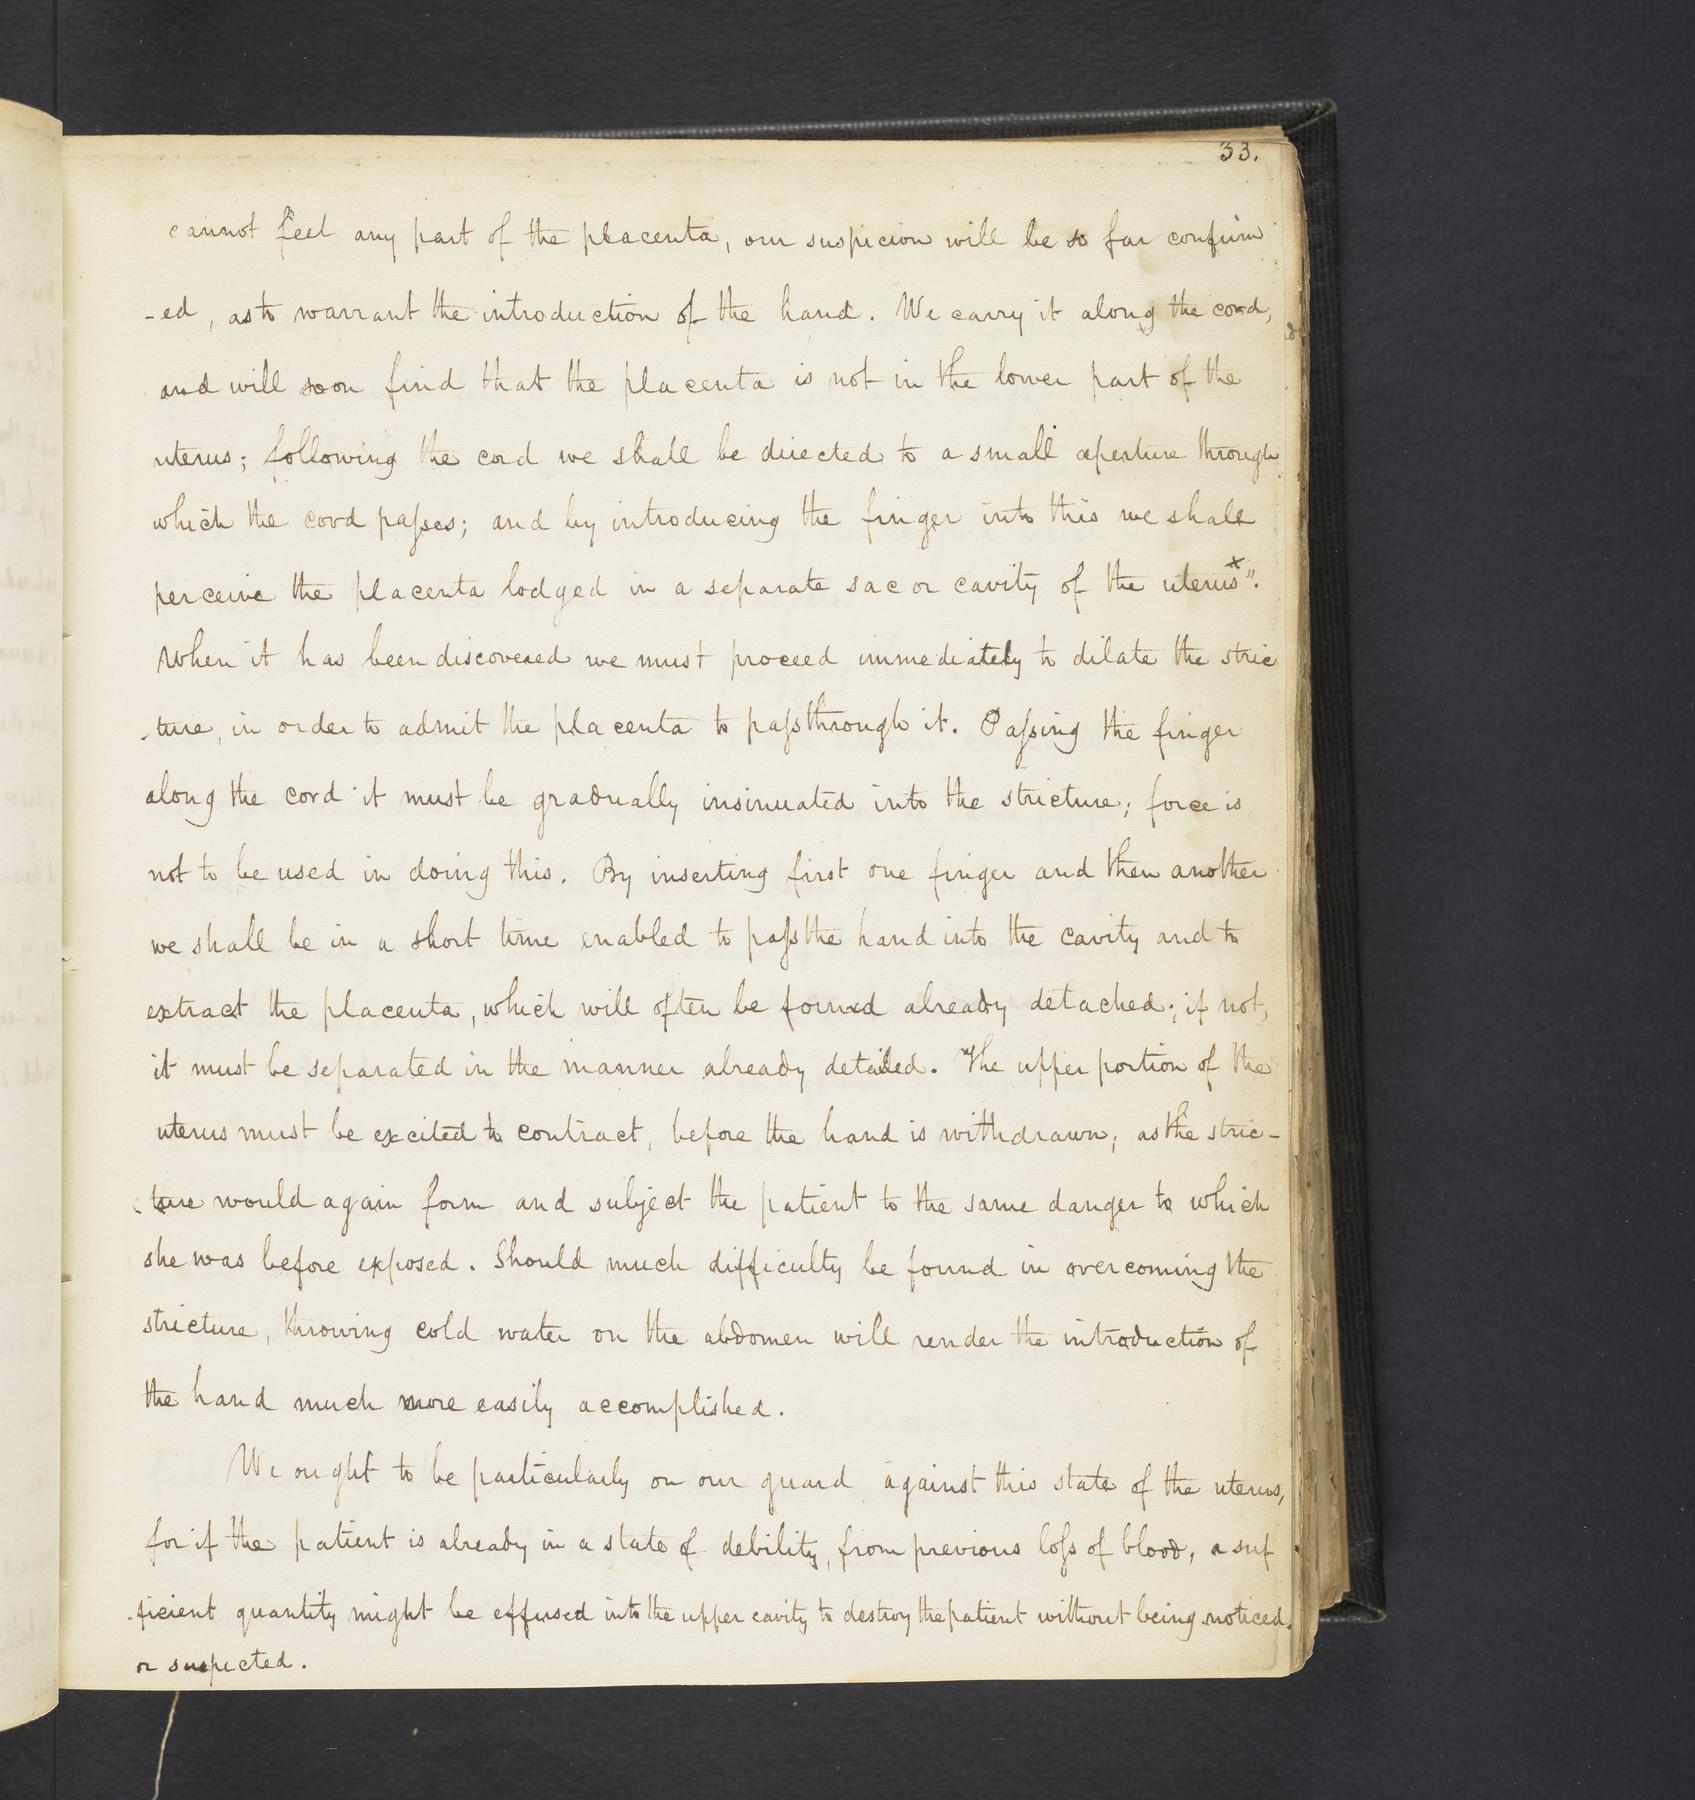 33.
cannot feel any part of the placenta, our suspicion will be so far confirm
-ed, as to warrant the introduction of the hand. We carry it along the cord,
and will soon find that the placenta is not in the lower part of the
uterus; following the cord we shall be directed to a small aperture through
which the cord paſses; and by introducing the finger into this we shall
perceive the placenta lodged in a separate sac or cavity of the uterus*".
When it has been discovered we must proceed immediately to dilate the stric
-ture, in order to admit the placenta to paſs through it. Paſsing the finger
along the cord it must be gradually insinuated into the stricture; force is
not to be used in doing this. By inserting first one finger and then another
we shall be in a short time enabled to paſs the hand into the cavity and to
extract the placenta, which will often be found already detached; if not,
it must be separated in the manner already detailed. The upper portion of the
uterus must be excited to contract, before the hand is withdrawn; as the stric-
-ture would again form and subject the patient to the same danger to which
she was before exposed. Should much difficulty be found in overcoming the
stricture, throwing cold water on the abdomen will render the introduction of
the hand much more easily accomplished.
We ought to be particularly on our guard against this state of the uterus,
for if the patient is already in a state of debility, from previous loſs of blood, a suf
-ficient quantity might be effused into the upper cavity to destroy the patient without being noticed
or suspected.